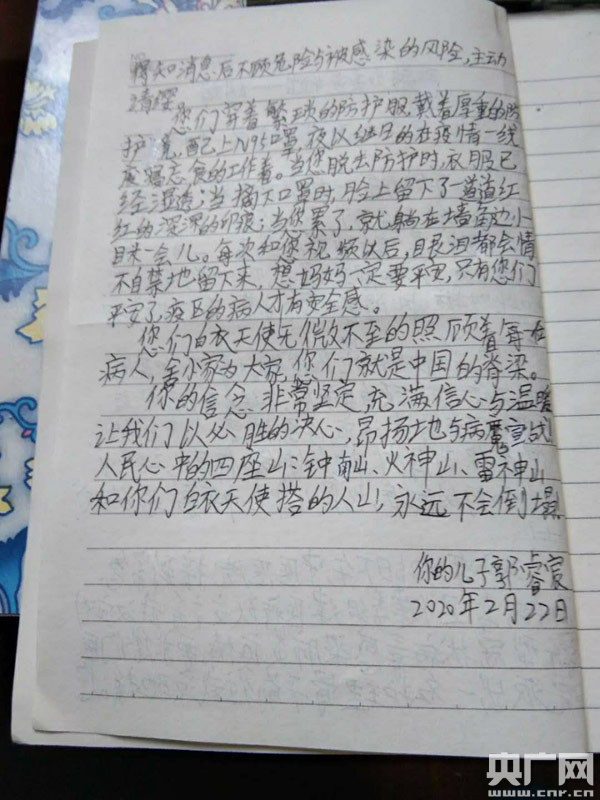 得知消息后不顾危险与被感染的风险,主动
请缨。
您们穿着繁琐的防护服,戴着厚重的防
护镜,配上N95口罩,夜以继日的在疫情一线
废寝忘食的工作着。当您脱去防护时,衣服已
经湿透;当摘下口罩时,脸上留下了一道道红
红的深深的印痕;当您累了,就躺在墙角边小
目米一会儿。每次和您视频以后,眼泪都会情
不自禁地留下来,想妈妈一定要平安,只有您们
平安了,疫区的病人才有安全感。
您们白衣天使无微不至的照顾着每一位
病人,舍小家为大家,您们就是中国的脊梁。
你的信念非常坚定,充满信心与温暖
让我们以必胜的决心,昂扬地与病魔宣战!
人民心中的四座山:钟南山、火神山、雷神山
和你们白衣天使搭的人山,永远不会倒塌
你的儿子郭睿宸
2020年2月22日
央广网
www.cnr.cn